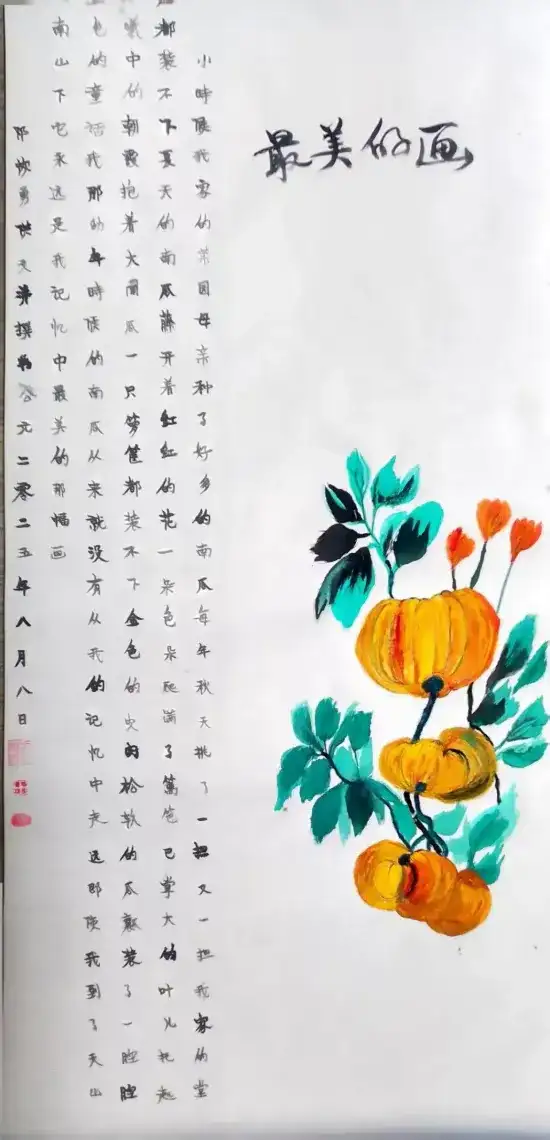 最美的画
小時候我家的菜园母亲种了好多的南瓜每年秋天挑了一担又一担我家的堂
都装不下夏天的南瓜藤开着红红的花一朵色朵爬满了篱笆巴掌大的叶儿托起
曦中的朝霞抱着大南瓜一只箩筐都装不下金色的灾的松软的瓜瓤装了一腔腔
色的童话我那的年時候的南瓜从来就没有从我的记忆中走远即使我到了天山
南山下它永远是我记忆中最美的那幅画
撰稿公元二零二五年八月八日